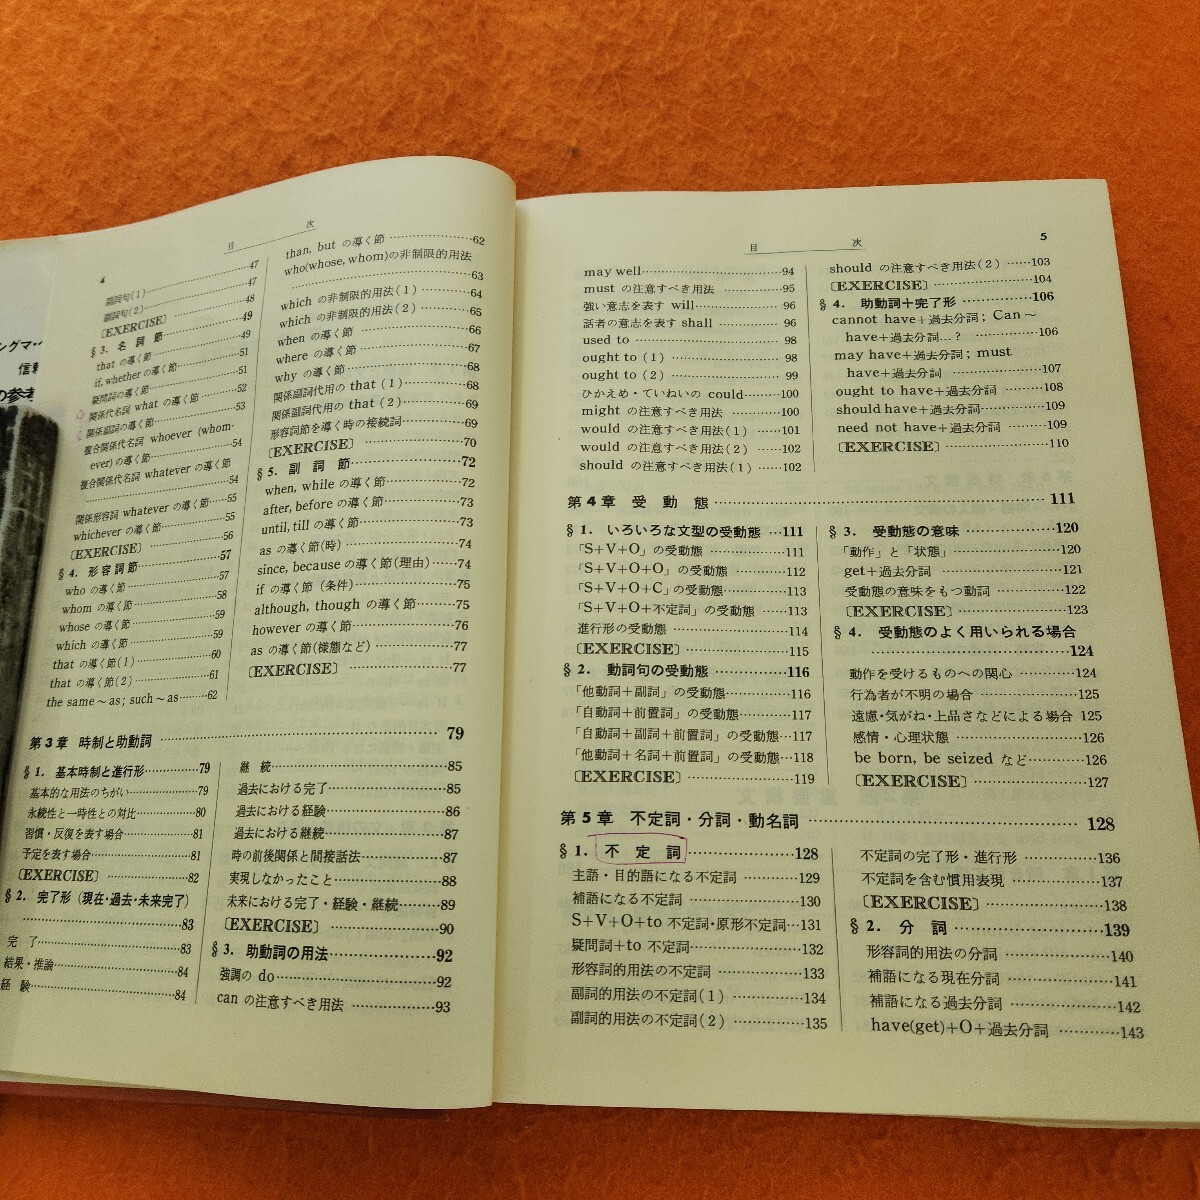 ングマ・
信頼
の参考
目 次
4
副詞句(1)…47
副詞句(2)…47
〔EXERCISE〕…48
§3. 名詞節…49
that の導く節…49
if, whether の導く節…51
疑問詞の導く節…51
関係代名詞 what の導く節…52
関係副詞の導く節…53
複合関係代名詞 whoever (whom-
ever) の導く節…54
複合関係代名詞 whatever の導く節
…54
関係形容詞 whatever の導く節…55
whichever の導く節…55
〔EXERCISE〕…56
§4. 形容詞節…57
who の導く節…57
whom の導く節…58
whose の導く節…59
which の導く節…59
that の導く節(1)…60
that の導く節(2)…61
the same ~ as; such ~ as…62
than, but の導く節…62
who(whose, whom)の非制限的用法
…63
which の非制限的用法(1)…64
which の非制限的用法(2)…65
when の導く節…66
where の導く節…67
why の導く節…68
関係副詞代用の that (1)…68
関係副詞代用の that (2)…69
形容詞節を導く時の接続詞…69
〔EXERCISE〕…70
§5. 副詞節…72
when, while の導く節…72
after, before の導く節…73
until, till の導く節…73
as の導く節(時)…74
since, because の導く節(理由)…74
if の導く節 (条件)…75
although, though の導く節…75
however の導く節…76
as の導く節(様態など)…77
〔EXERCISE〕…77
第3章 時制と助動詞…79
§1. 基本時制と進行形…79
基本的な用法のちがい…79
永続性と一時性との対比…80
習慣・反復を表す場合…81
予定を表す場合…81
〔EXERCISE〕…82
§2. 完了形 (現在・過去・未来完了)
…83
完 了…83
結果・推論…84
経 験…84
継 続…85
過去における完了…85
過去における経験…86
過去における継続…87
時の前後関係と間接話法…87
実現しなかったこと…88
未来における完了・経験・継続…89
〔EXERCISE〕…90
§3. 助動詞の用法…92
強調の do…92
can の注意すべき用法…93
目 次
5
may well…94
must の注意すべき用法…95
強い意志を表す will…96
話者の意志を表す shall…96
used to…98
ought to (1)…98
ought to (2)…99
ひかえめ・ていねいの could…100
might の注意すべき用法…100
would の注意すべき用法(1)…101
would の注意すべき用法(2)…102
should の注意すべき用法(1)…102
should の注意すべき用法(2)…103
〔EXERCISE〕…104
§4. 助動詞+完了形…106
cannot have+過去分詞; Can ~
have+過去分詞…?…106
may have+過去分詞; must
have+過去分詞…107
ought to have+過去分詞…108
should have+過去分詞…109
need not have+過去分詞…109
〔EXERCISE〕…110
第4章 受 動 態…111
§1. いろいろな文型の受動態…111
「S+V+O」の受動態…111
「S+V+O+O」の受動態…112
「S+V+O+C」の受動態…113
「S+V+O+不定詞」の受動態…113
進行形の受動態…114
〔EXERCISE〕…115
§2. 動詞句の受動態…116
「他動詞+副詞」の受動態…116
「自動詞+前置詞」の受動態…117
「自動詞+副詞+前置詞」の受動態…117
「他動詞+名詞+前置詞」の受動態…118
〔EXERCISE〕…119
§3. 受動態の意味…120
「動作」と「状態」…120
get+過去分詞…121
受動態の意味をもつ動詞…122
〔EXERCISE〕…123
§4. 受動態のよく用いられる場合
…124
動作を受けるものへの関心…124
行為者が不明の場合…125
遠慮・気がね・上品さなどによる場合 125
感情・心理状態…126
be born, be seized など…126
〔EXERCISE〕…127
第5章 不定詞・分詞・動名詞…128
§1. 不 定 詞…128
主語・目的語になる不定詞…129
補語になる不定詞…130
S+V+O+to 不定詞・原形不定詞…131
疑問詞+to 不定詞…132
形容詞的用法の不定詞…133
副詞的用法の不定詞(1)…134
副詞的用法の不定詞(2)…135
不定詞の完了形・進行形…136
不定詞を含む慣用表現…137
〔EXERCISE〕…138
§2. 分 詞…139
形容詞的用法の分詞…140
補語になる現在分詞…141
補語になる過去分詞…142
have(get)+O+過去分詞…143